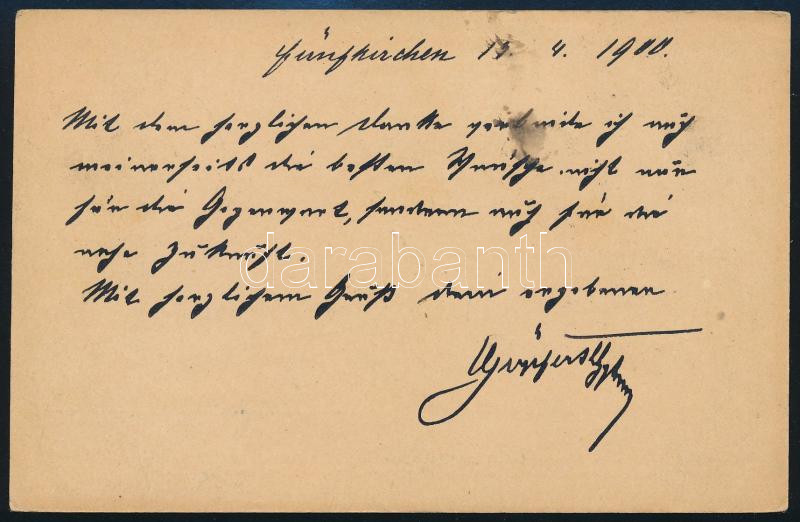 Fünfkirchen 15. 4. 1900.
Mit dem herzlichen Danke verbinde ich auch
meinerseits die besten Wünsche nicht nur
für die Gegenwart, sondern auch für die
nahe Zukunft.
darabanth
Mit herzlichem Gruß dein ergebener